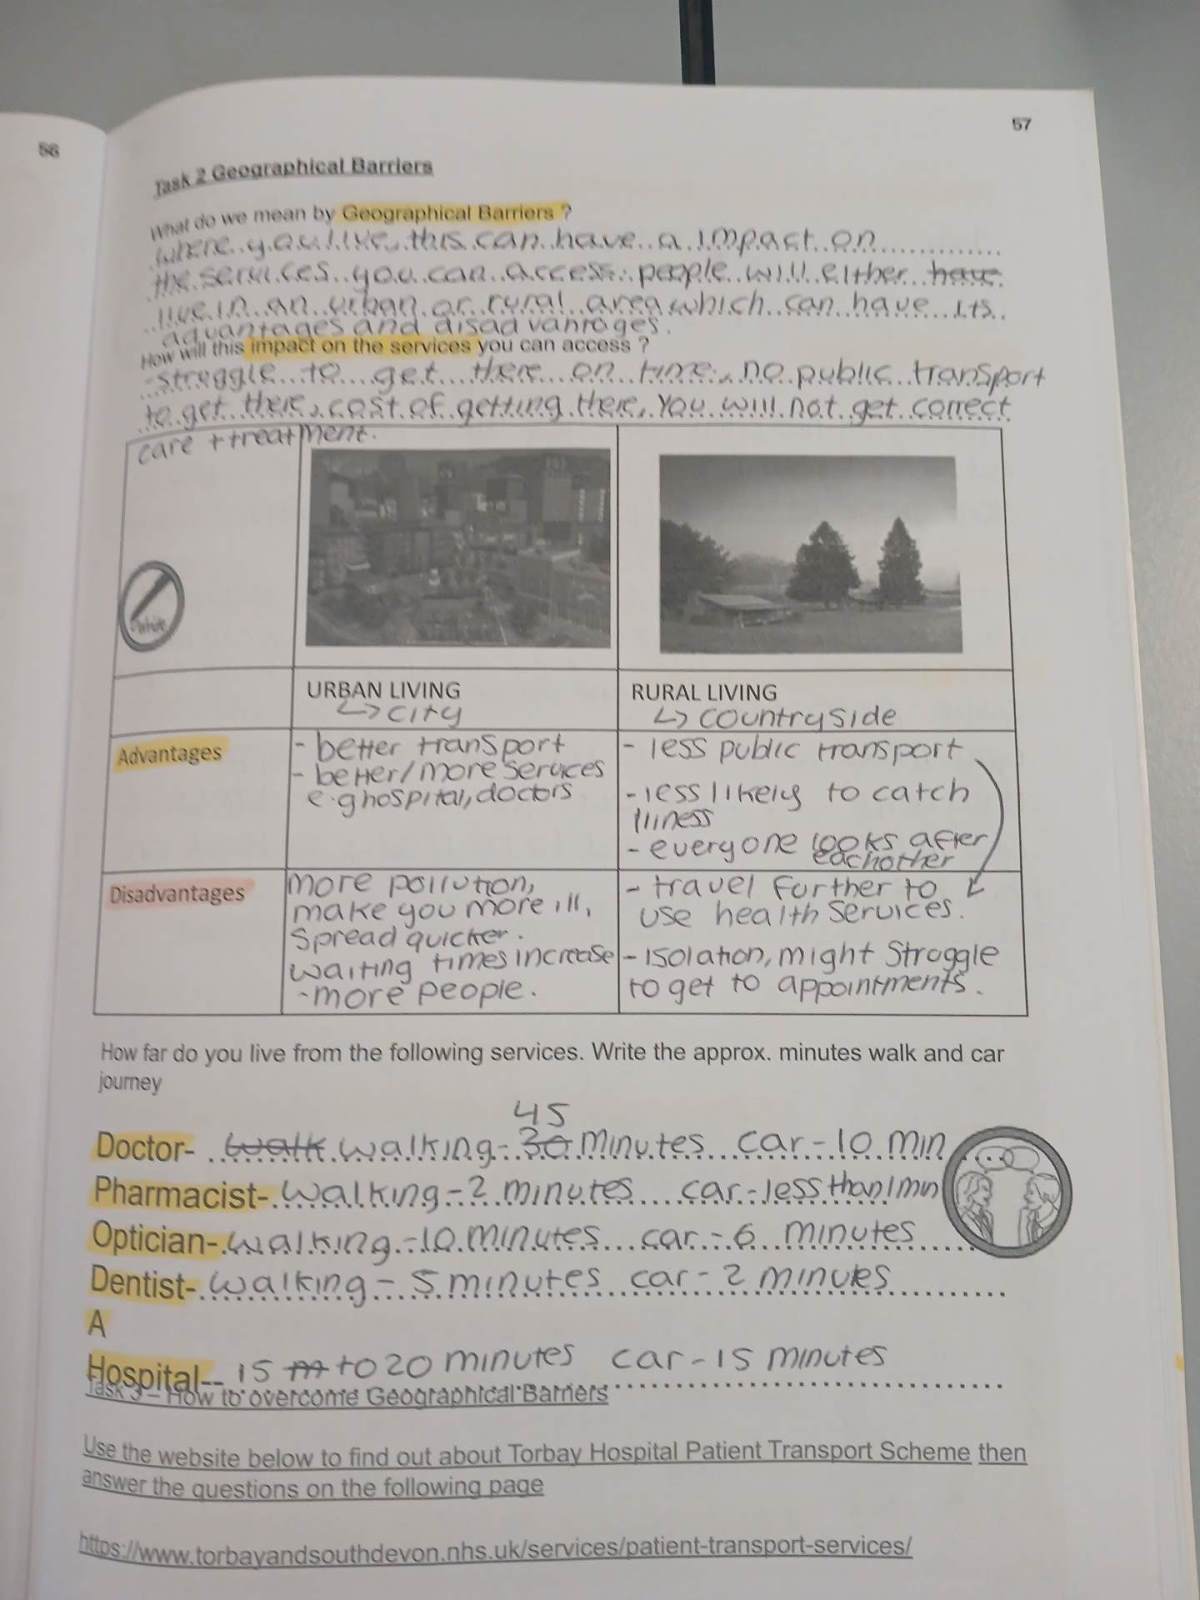 56
57
Task 2 Geographical Barriers
What do we mean by Geographical Barriers ?
where you live, this can have a impact on
the services you can access. people will either have
live in an urban or rural area which can have its
advantages and disadvantages.
How will this impact on the services you can access ?
-struggle to get there on time, no public transport
to get there, cost of getting there, you will not get correct
care + treatment.
Write
URBAN LIVING
↳ city
RURAL LIVING
↳ countryside
Advantages
- better transport
- better/more services
e.g hospital, doctors
- less public transport
- less likely to catch
illness
- everyone looks after
eachother
Disadvantages
more pollution,
make you more ill,
spread quicker.
waiting times increase
- more people.
- travel further to
use health services.
- isolation, might struggle
to get to appointments.
How far do you live from the following services. Write the approx. minutes walk and car
journey
45
Doctor- walk walking - 30 minutes car - 10 min
Pharmacist- walking - 2 minutes car - less than 1 min
Optician- walking - 10 minutes car - 6 minutes
Dentist- walking - 5 minutes car - 2 minutes
A
Hospital-- 15 m to 20 minutes car - 15 minutes
Task 3 – How to overcome Geographical Barriers
Use the website below to find out about Torbay Hospital Patient Transport Scheme then
answer the questions on the following page
https://www.torbayandsouthdevon.nhs.uk/services/patient-transport-services/